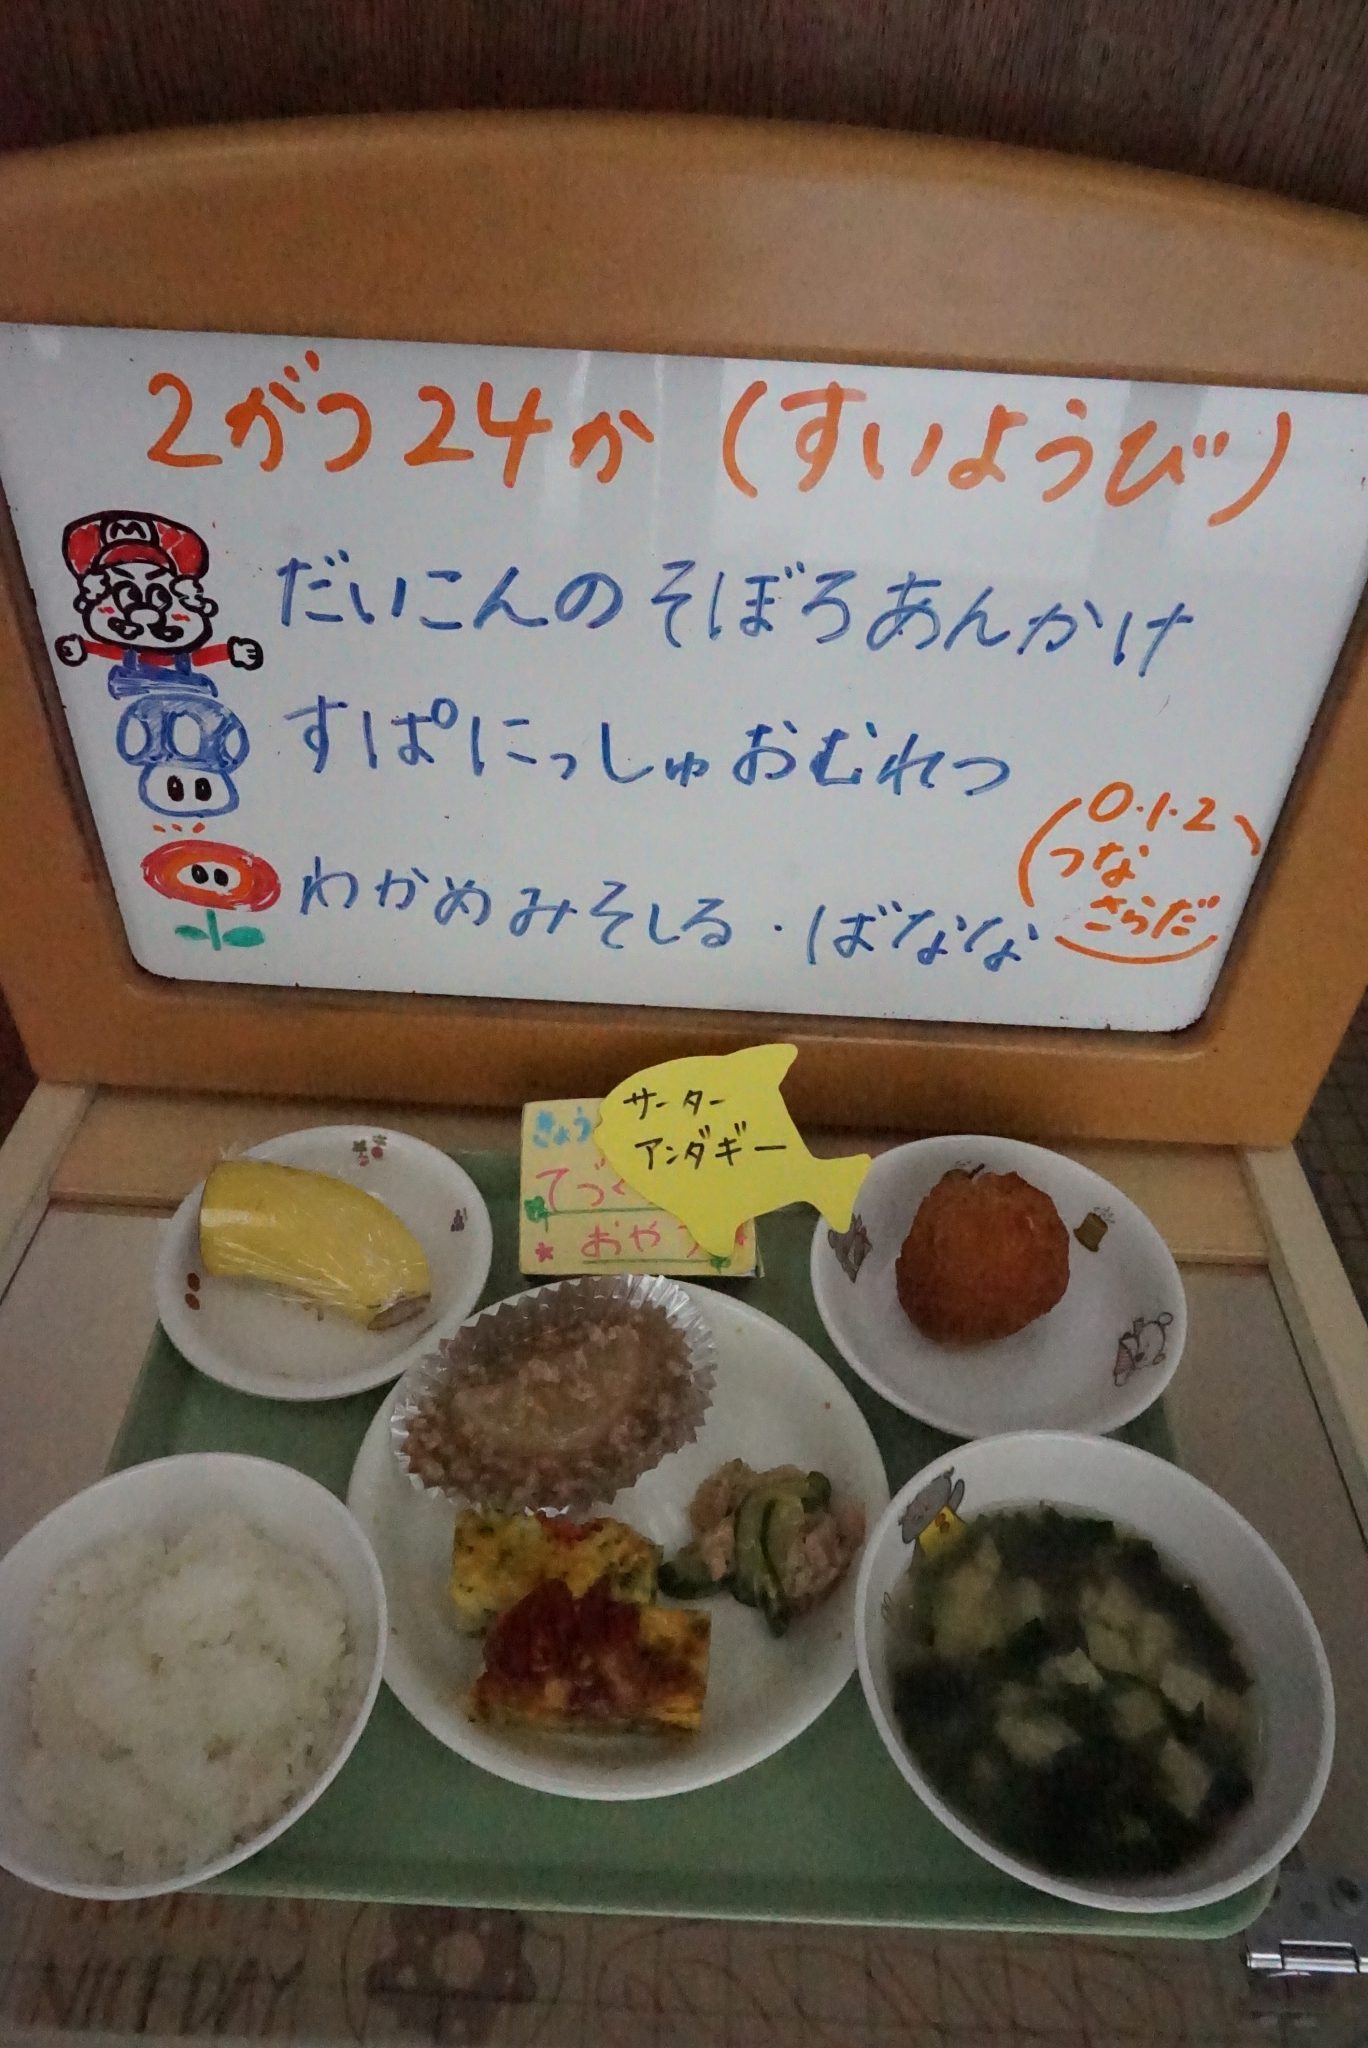 2がつ24か(すいようび)
M
だいこんのそぼろあんかけ
すぱにっしゅおむれつ
わかめみそしる・ばなな
(0・1・2
つな
さらだ)
サーター
アンダギー
きょう
てづく
おやつ
NICE DAY